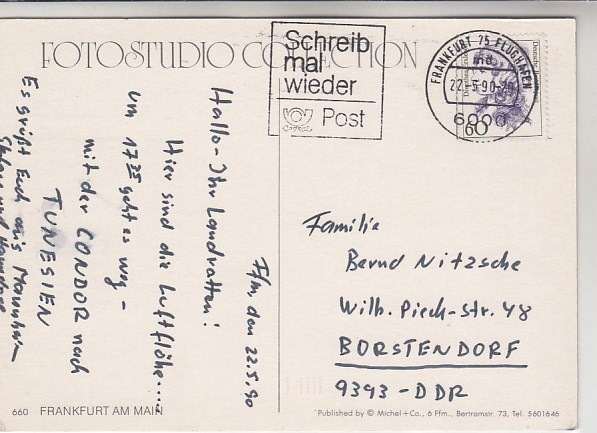 FOTOSTUDIO COLLECTION
Schreib
mal
wieder
Post
FRANKFURT 75 FLUGHAFEN
22.-5.90-
6000
60
Ffm, den 22.5.90
Hallo - Ihr Landratten!
Hier sind die Luftflöhe.....
um 17 geht es weg -
mit der CONDOR nach
TUNESIEN
Es grüßt Euch aus
Familie
Bernd Nitzsche
Wilh. Pieck-Str. 48
BORSTENDORF
9393 - DDR
660 FRANKFURT AM MAIN
Published by © Michel+Co., 6 Ffm., Bertramstr. 73, Tel. 5601646